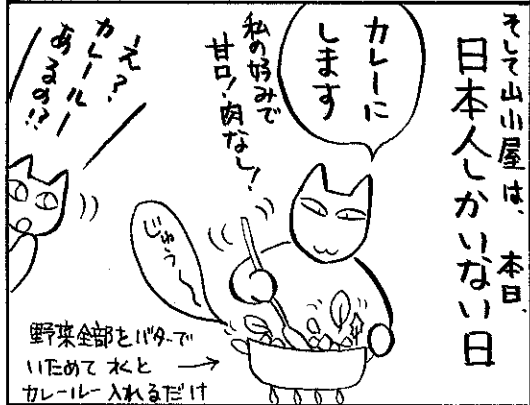 そして山小屋は、本日、
日本人しかいない日
カレーに
します
私の好みで
甘口!肉なし!
じゅう〜
えー?
カレールー
あるの!?
野菜全部をバターで
いためて 水と
カレールー入れるだけ→